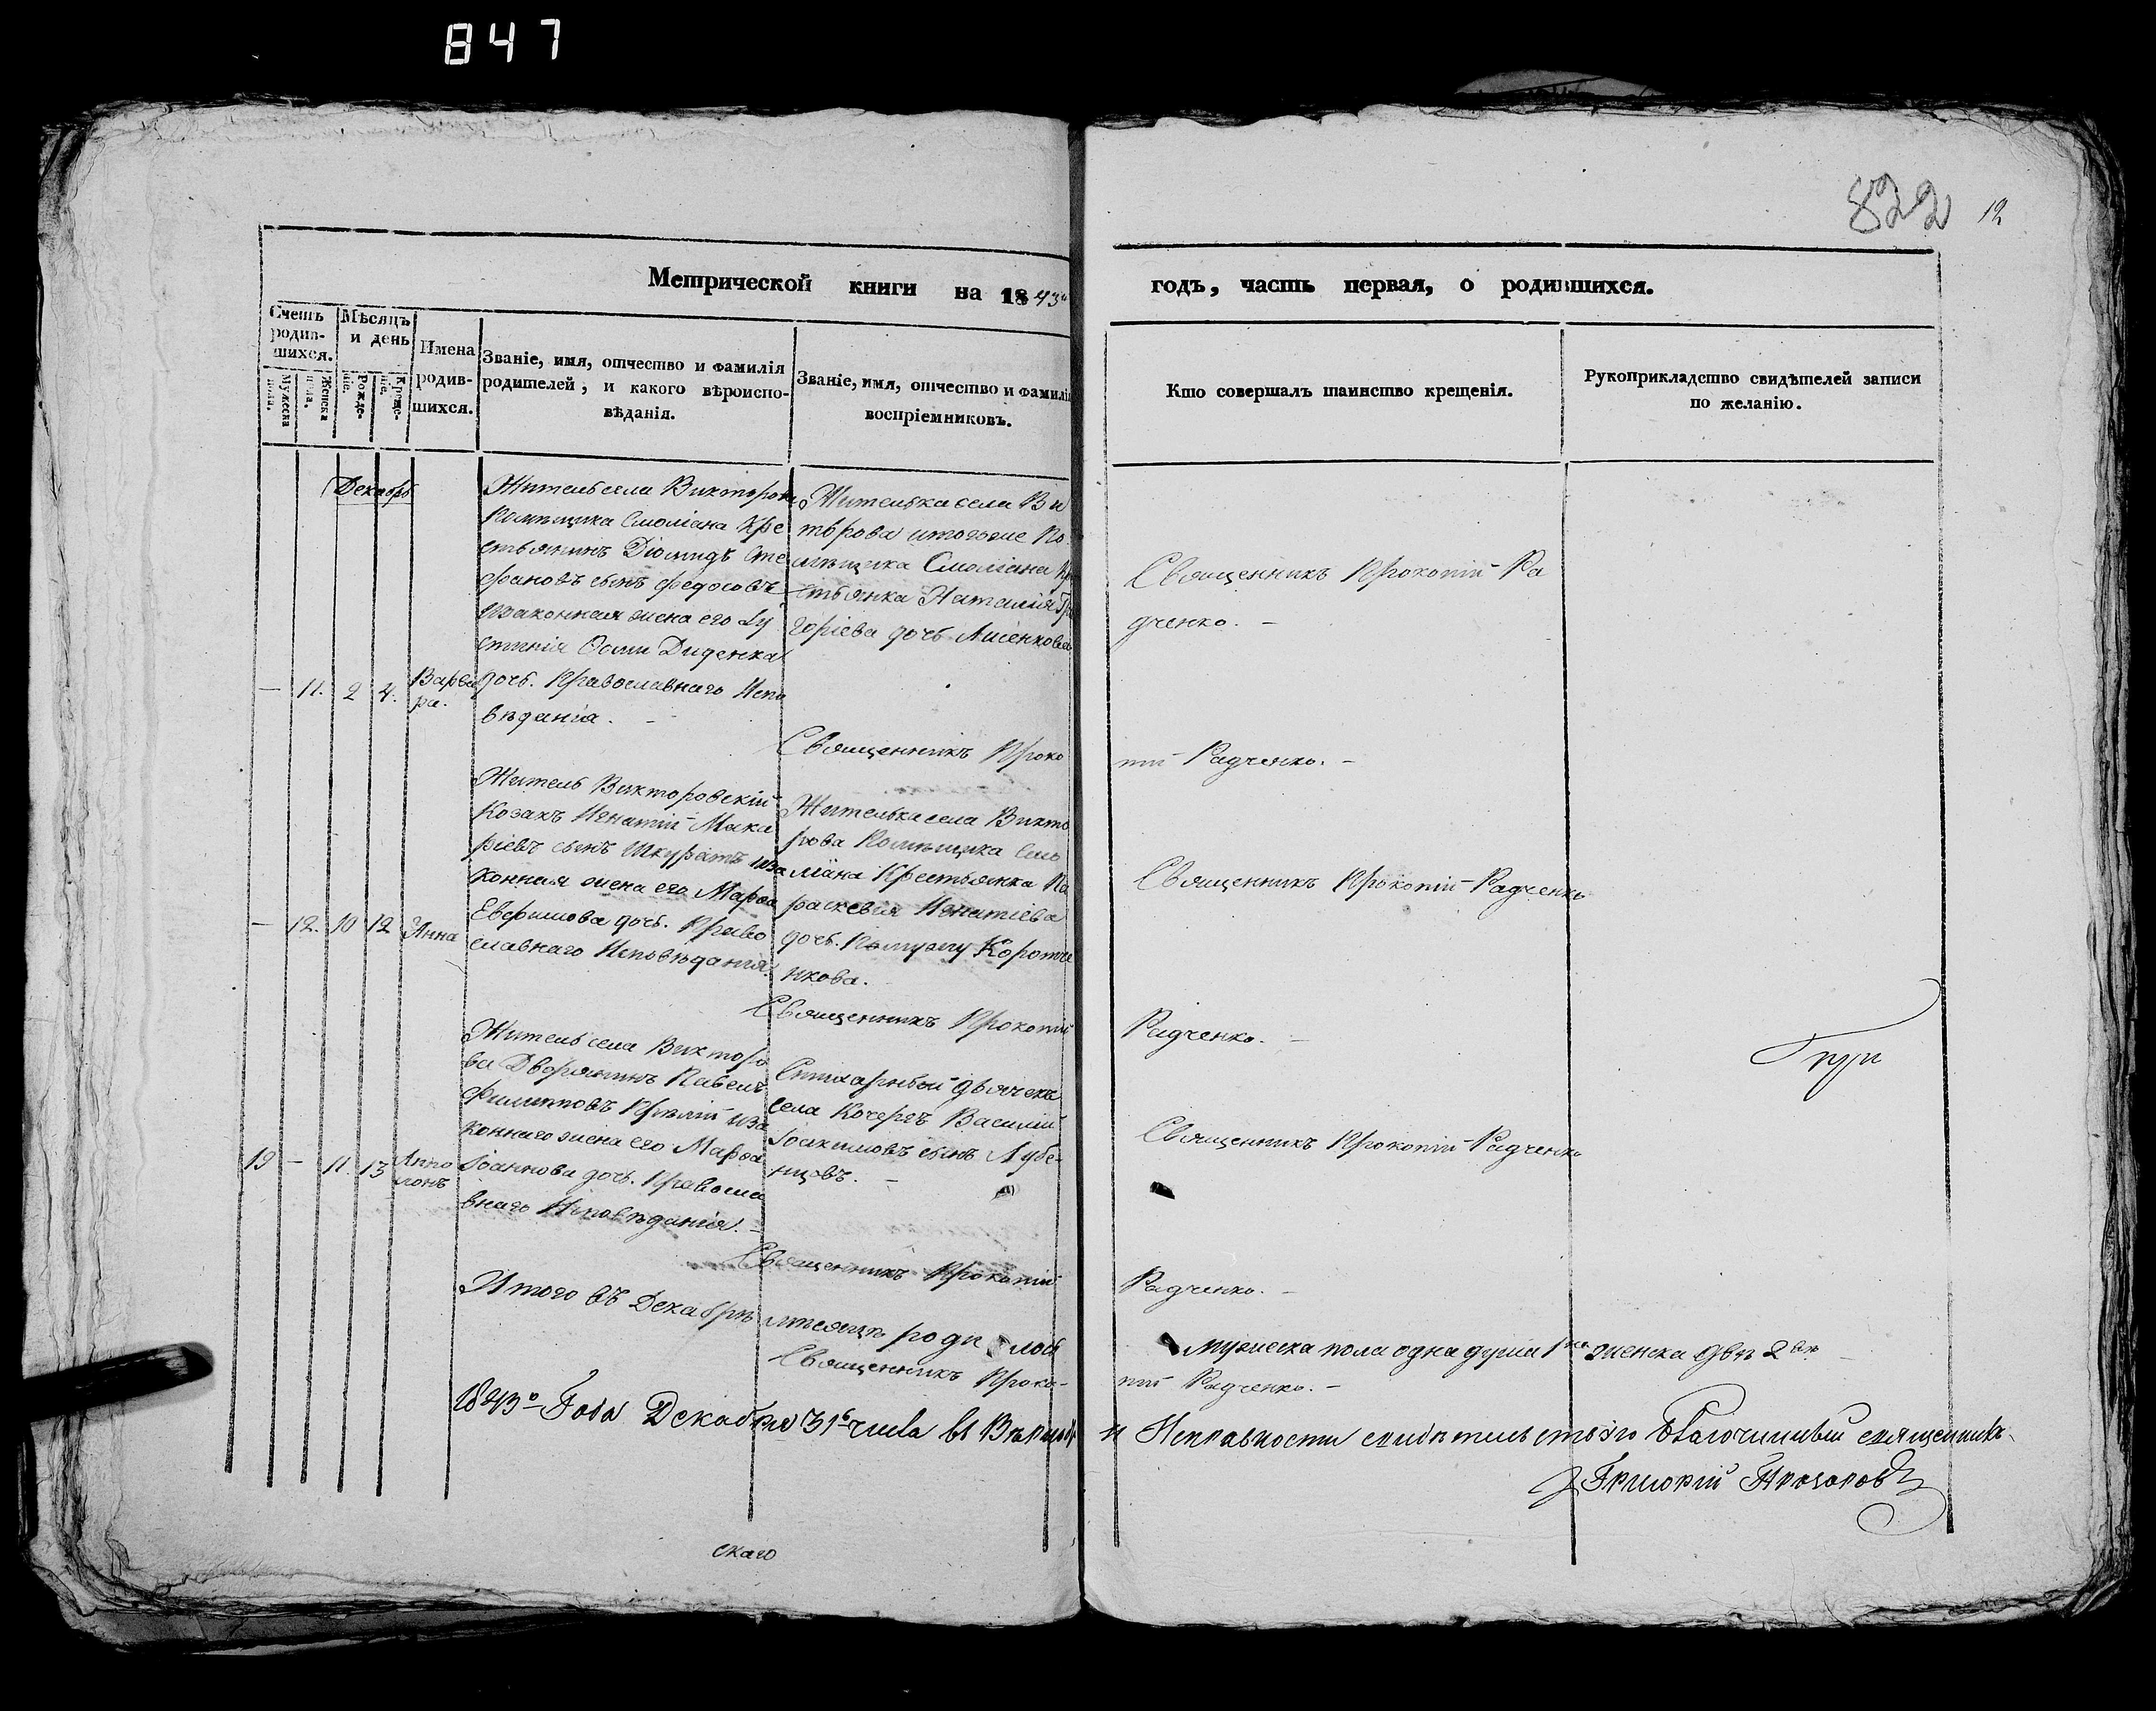 847
822 12
Метрической книги на 1843й
годъ, часть первая, о родившихся.
Счетъ родив-
шихся.
Мужеска
пола.
Женска
пола.
Мѣсяцъ
и день
Рожде-
ніе.
Креще-
ніе.
Имена
родив-
шихся.
Званіе, имя, отчество и фамилія
родителей, и какого вѣроиспо-
вѣданія.
Званіе, имя, отчество и фамилія
воспріемниковъ.
Кто совершалъ таинство крещенія.
Рукоприкладство свидѣтелей записи
по желанію.
Декабрь
— 11. 2 4. Варва
ра.
Житель села Викторова
Помѣщика Смоліана Кре
стьянинъ Діомидъ Сте
фановъ сынъ Федосовъ
изаконная жена его Ду
Диденка
дочь. Православнаго Испо
вѣданія. —
Жителька села Ви
кторова Помѣщика Смоліана Кр
стьянка Наталія Гри
горіева дочь Лисенкова
Священникъ Прокопій Ра
дченко. —
Священникъ Проко
пій Радченко. —
— 12. 10 12 Анна
Житель Викторовскій
Козакъ Игнатій Мака
ріевъ сынъ Шкуратъ иза
конная жена его Марѳа
Евфимова дочь. Право
славнаго Исповѣданія.
Жителька села Викто
рова Помѣщика Смо
ліана Крестьянка Па
раскевія Игнатіева
дочь. По мужу Коротче
нкова.
Священникъ Прокопій Радченко
Священникъ Прокопій
Радченко. —
При
19 — 11. 13 Аппо
лонъ
Житель села Викторо
ва Дворянинъ Павелъ
Филипповъ иза
конная жена его Марѳа
Іоаннова дочь. Правосла
внаго Исповѣданія. —
Стихарный дьячекъ
села Кочергъ Василій
Іоакимовъ сынъ Лубе-
нцовъ. —
Священникъ Прокопій Радченко
Священникъ Прокопій
Радченко. —
Итого въ Декабрѣ мѣсяцѣ родилось
мужеска пола одна душа 1на женска двѣ 2вѣ —
Священникъ Проко-
пій Радченко. —
1843о Года Декабря 31о числа въ Вѣрност
и Исправности свидѣтельствую Благочинный священникъ
Григорій
скаго